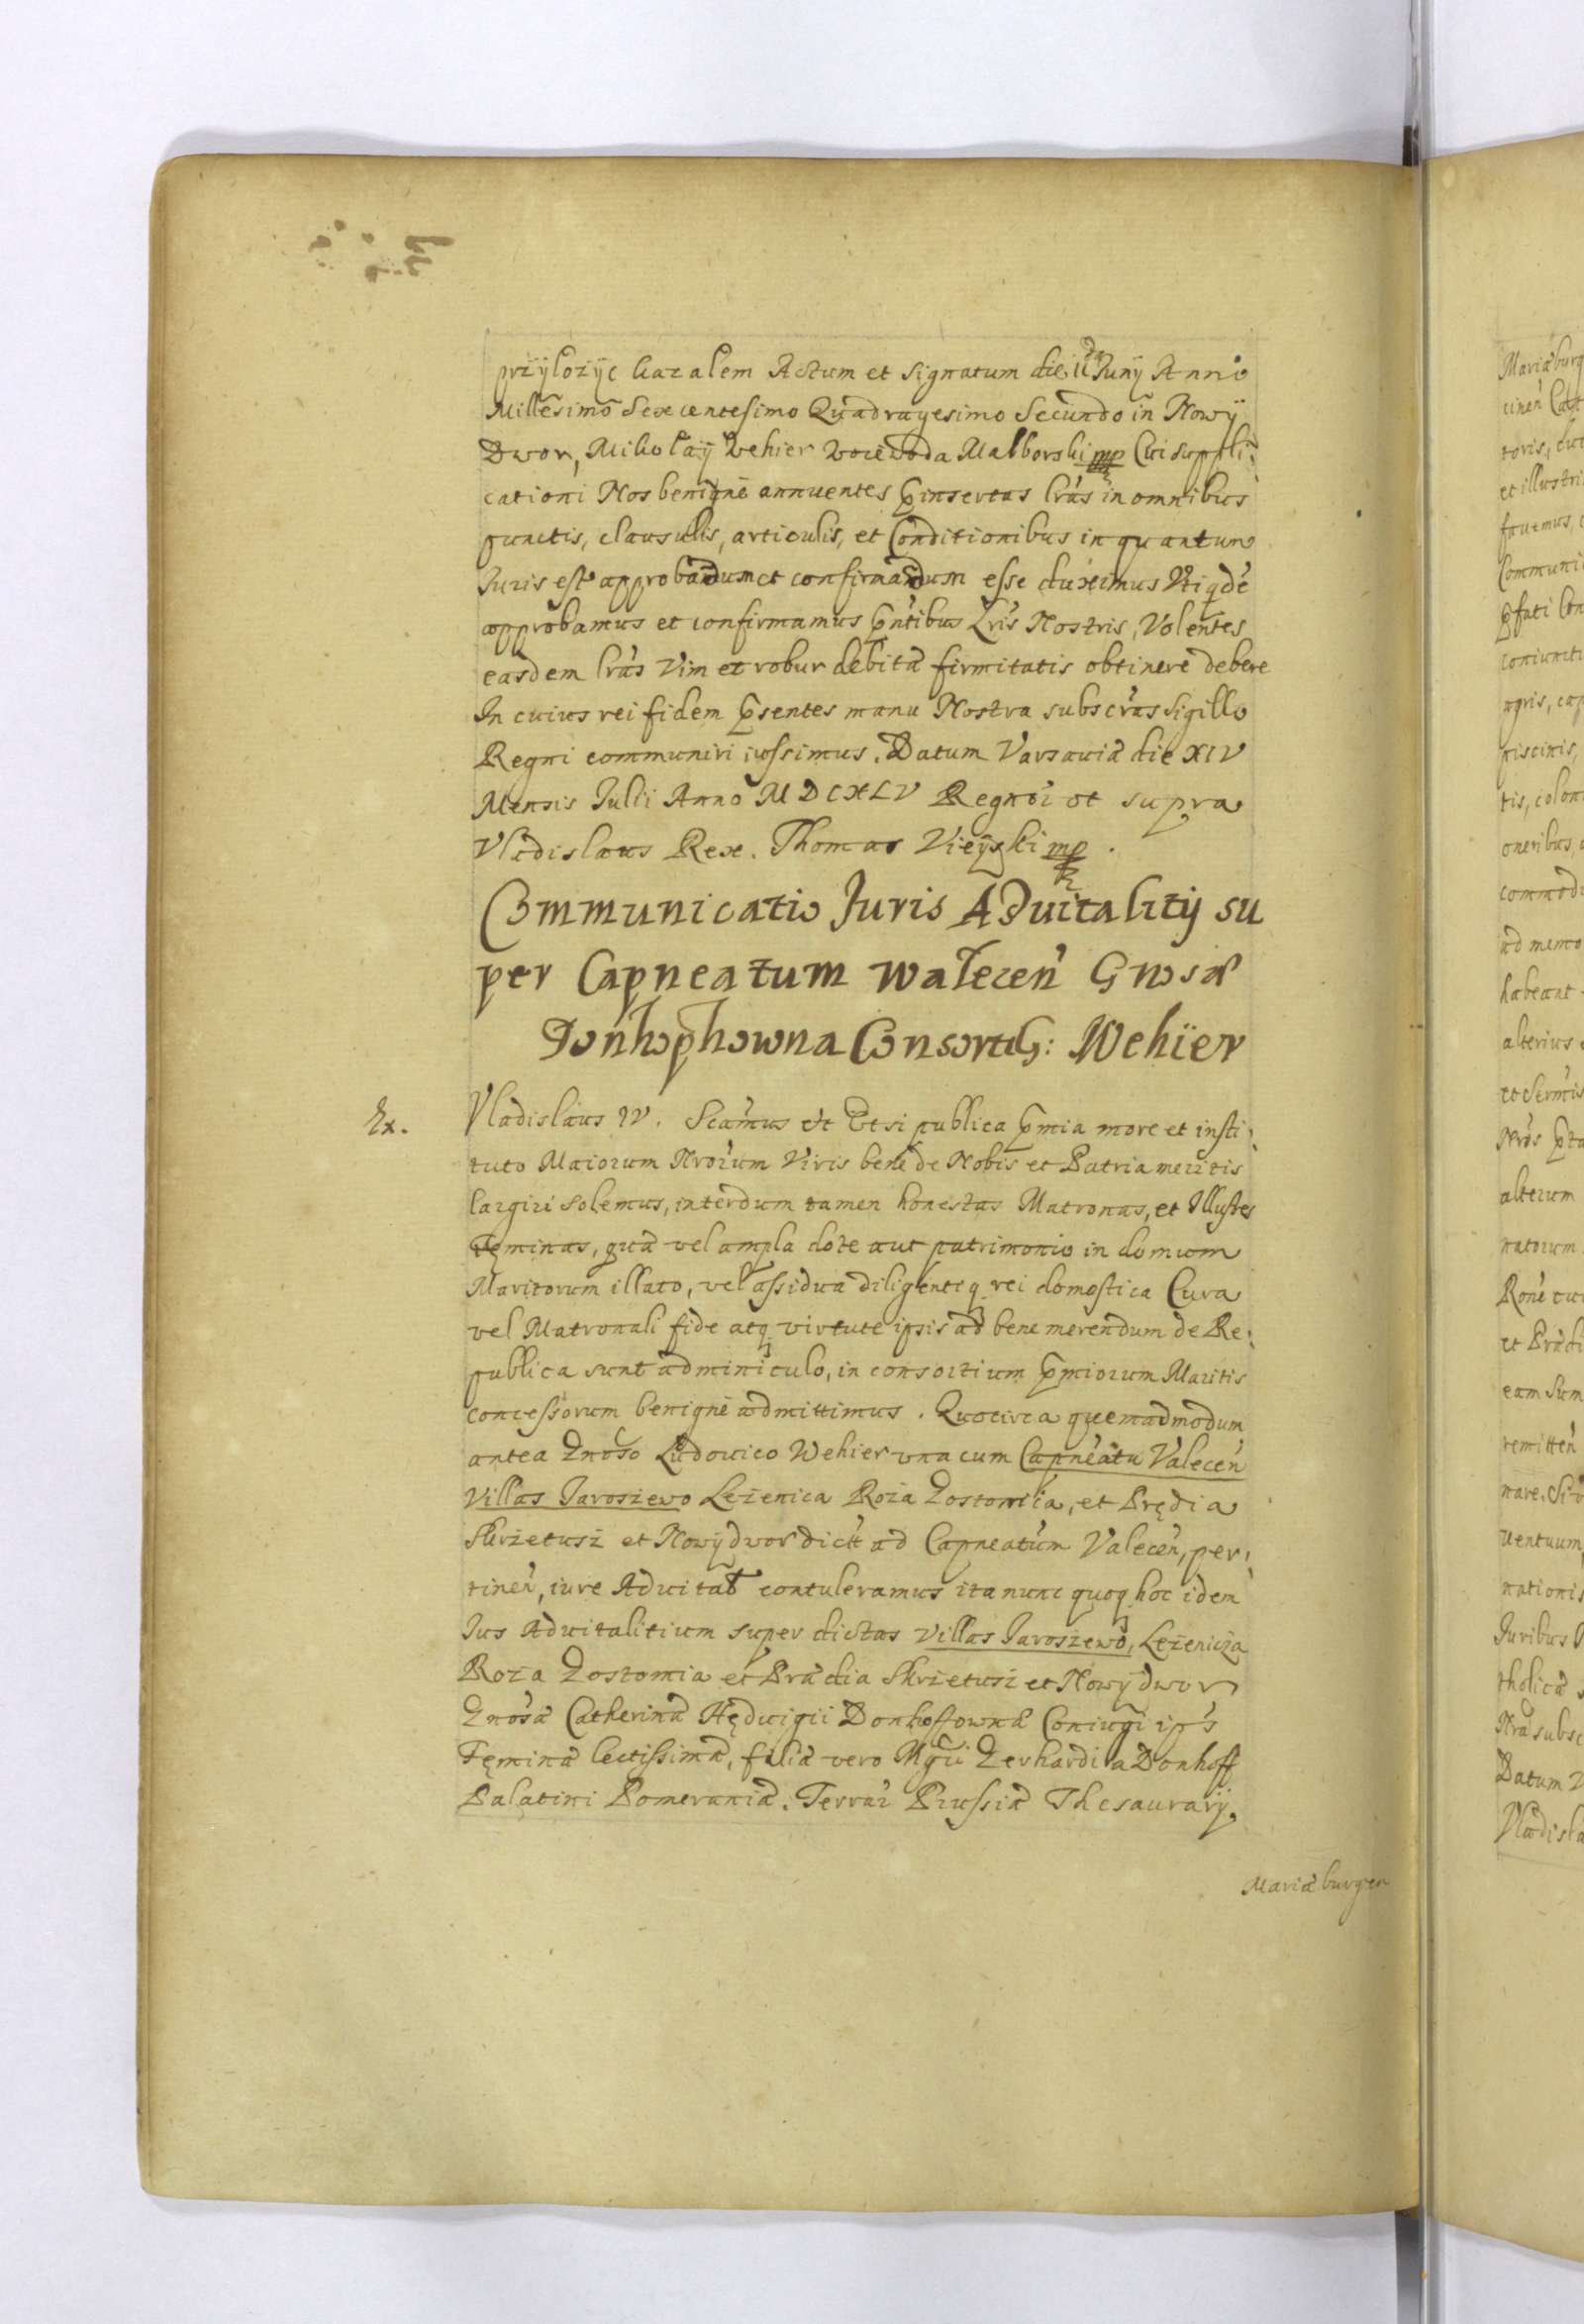 przÿlozÿc kazalem Actum et signatum die 11 da Junÿ Anno
Millesimo Sexcentesimo Quadragesimo Secundo in Nowÿ
Dwor, Mikolaÿ Wehier Woiewoda Malborski mp Cui suppli:
cationi Nos benignè annuentes pinsertas lras in omnibus
punctis, clausulis, articulis, et Conditionibus in quantum
Juris est approbandum et confirmandum esse duximus Vti qdè
approbamus et confirmamus pntibus Lris Nostris, Volentes
easdem lras Vim et robur debitæ firmitatis obtinere debere
In cuius rei fidem psentes manu Nostra subscras Sigillo
Regni communiri iussimus. Datum Varsaviæ die XIV
Mensis Julii Anno MDCXLV Regnor ut supra
Vladislaus Rex. Thomas Vieÿski mp.
Communicatio Juris Advitalitÿ su
per Capneatum Walecen Gnosæ
Donhophowna Consorti G: Wehïer
Ex. Vladislaus IV. Scamus etc Etsi publica pmia more et insti:
tuto Maiorum Nrorum Viris bene de Nobis et Patria meritis
largiri solemus, interdum tamen honestas Matronas, et Illustres
Fęminas, quæ vel ampla dote aut patrimonio in domum
Maritorum illato, vel assidua diligentiq rei domestica Cura
vel Matronali fide atq virtute ipsis ad bene merendum de Re:
publica sunt adminiculo, in consortium pmiorum Maritis
concessorum benignè admittimus. Quocirca quemadmodum
antea Gnoso Ludovico Wehier una cum Capneatu Valecen
Villas Jaroszewo Leżenica Roza Zostomia, et Prędia
Skrzetusz et Nowÿdwor dictt ad Capneatum Valecen, per:
tinen, iure Advitał contuleramus ita nunc quoq hoc idem
Jus Advitalitium super dictas Villas Jaroszewo, Leżenicza
Roza Zostomia et Prædia Skrzetusz et Nowÿdwor
Gnosæ Catherinæ Hędvigii Donhoffownæ Coniugi ips
Fęminæ lectissimæ, filiæ vero Mgci Gerhardi a Donhoff
Palatini Pomeraniæ. Terrar Prussiæ Thesaurarÿ.
Mariæburgen